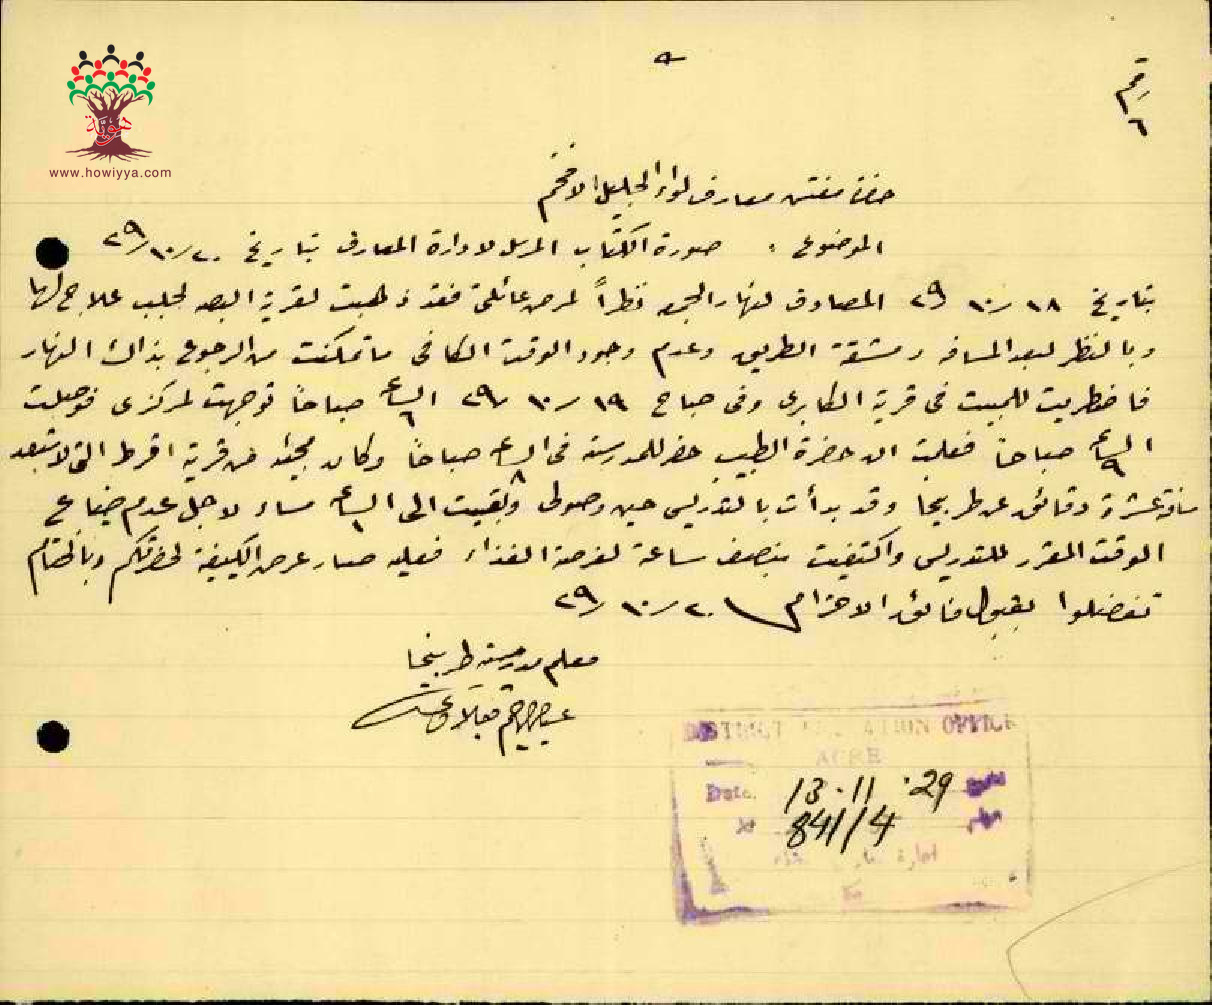 هوية
www.howiyya.com
٥
رقم
٦
حضرة مفتش معارف لواء الجليل الافخم
الموضوع : صورة الكتاب المرسل لادارة المعارف بتاريخ ٢٠/١٠/٢٩
بتاريخ ١٨/١٠/٢٩ المصادف لنهار الجمعه نظراً لمرض عائلتي فقد ذهبت لقرية البصه لجلب علاج لها
وبالنظر لبعد المسافه ومشقة الطريق وعدم وجود الوقت الكافي ما تمكنت من الرجوع بذاك النهار
فاضطريت للمبيت في قرية الكابري وفي صباح ١٩/١٠/٢٩ الساعه ٦ صباحاً توجهت لمركزي فوصلت
الساعه ٩ صباحاً فعلمت ان حضرة الطبيب حضر للمدرسة في الساعه ٨ صباحاً وكان مجيئه من قرية اقرط التي لا تبعد
مسافة عشرة دقائق عن طربيخا وقد بدأت بالتدريس حين وصولي وبقيت الى الساعه ١ مساء لاجل عدم ضياع
الوقت المقرر للتدريس واكتفيت بنصف ساعة لفرصة الغذاء فعليه صار عرض الكيفية لحضرتكم وبالختام
تفضلوا بقبول فائق الاحترام ٢٠/١٠/٢٩
معلم مدرسة طربيخا
DISTRICT EDUCATION OFFICE
ACRE
Date. 13.11.'29 التاريخ
No 841/14
ادارة
عكا